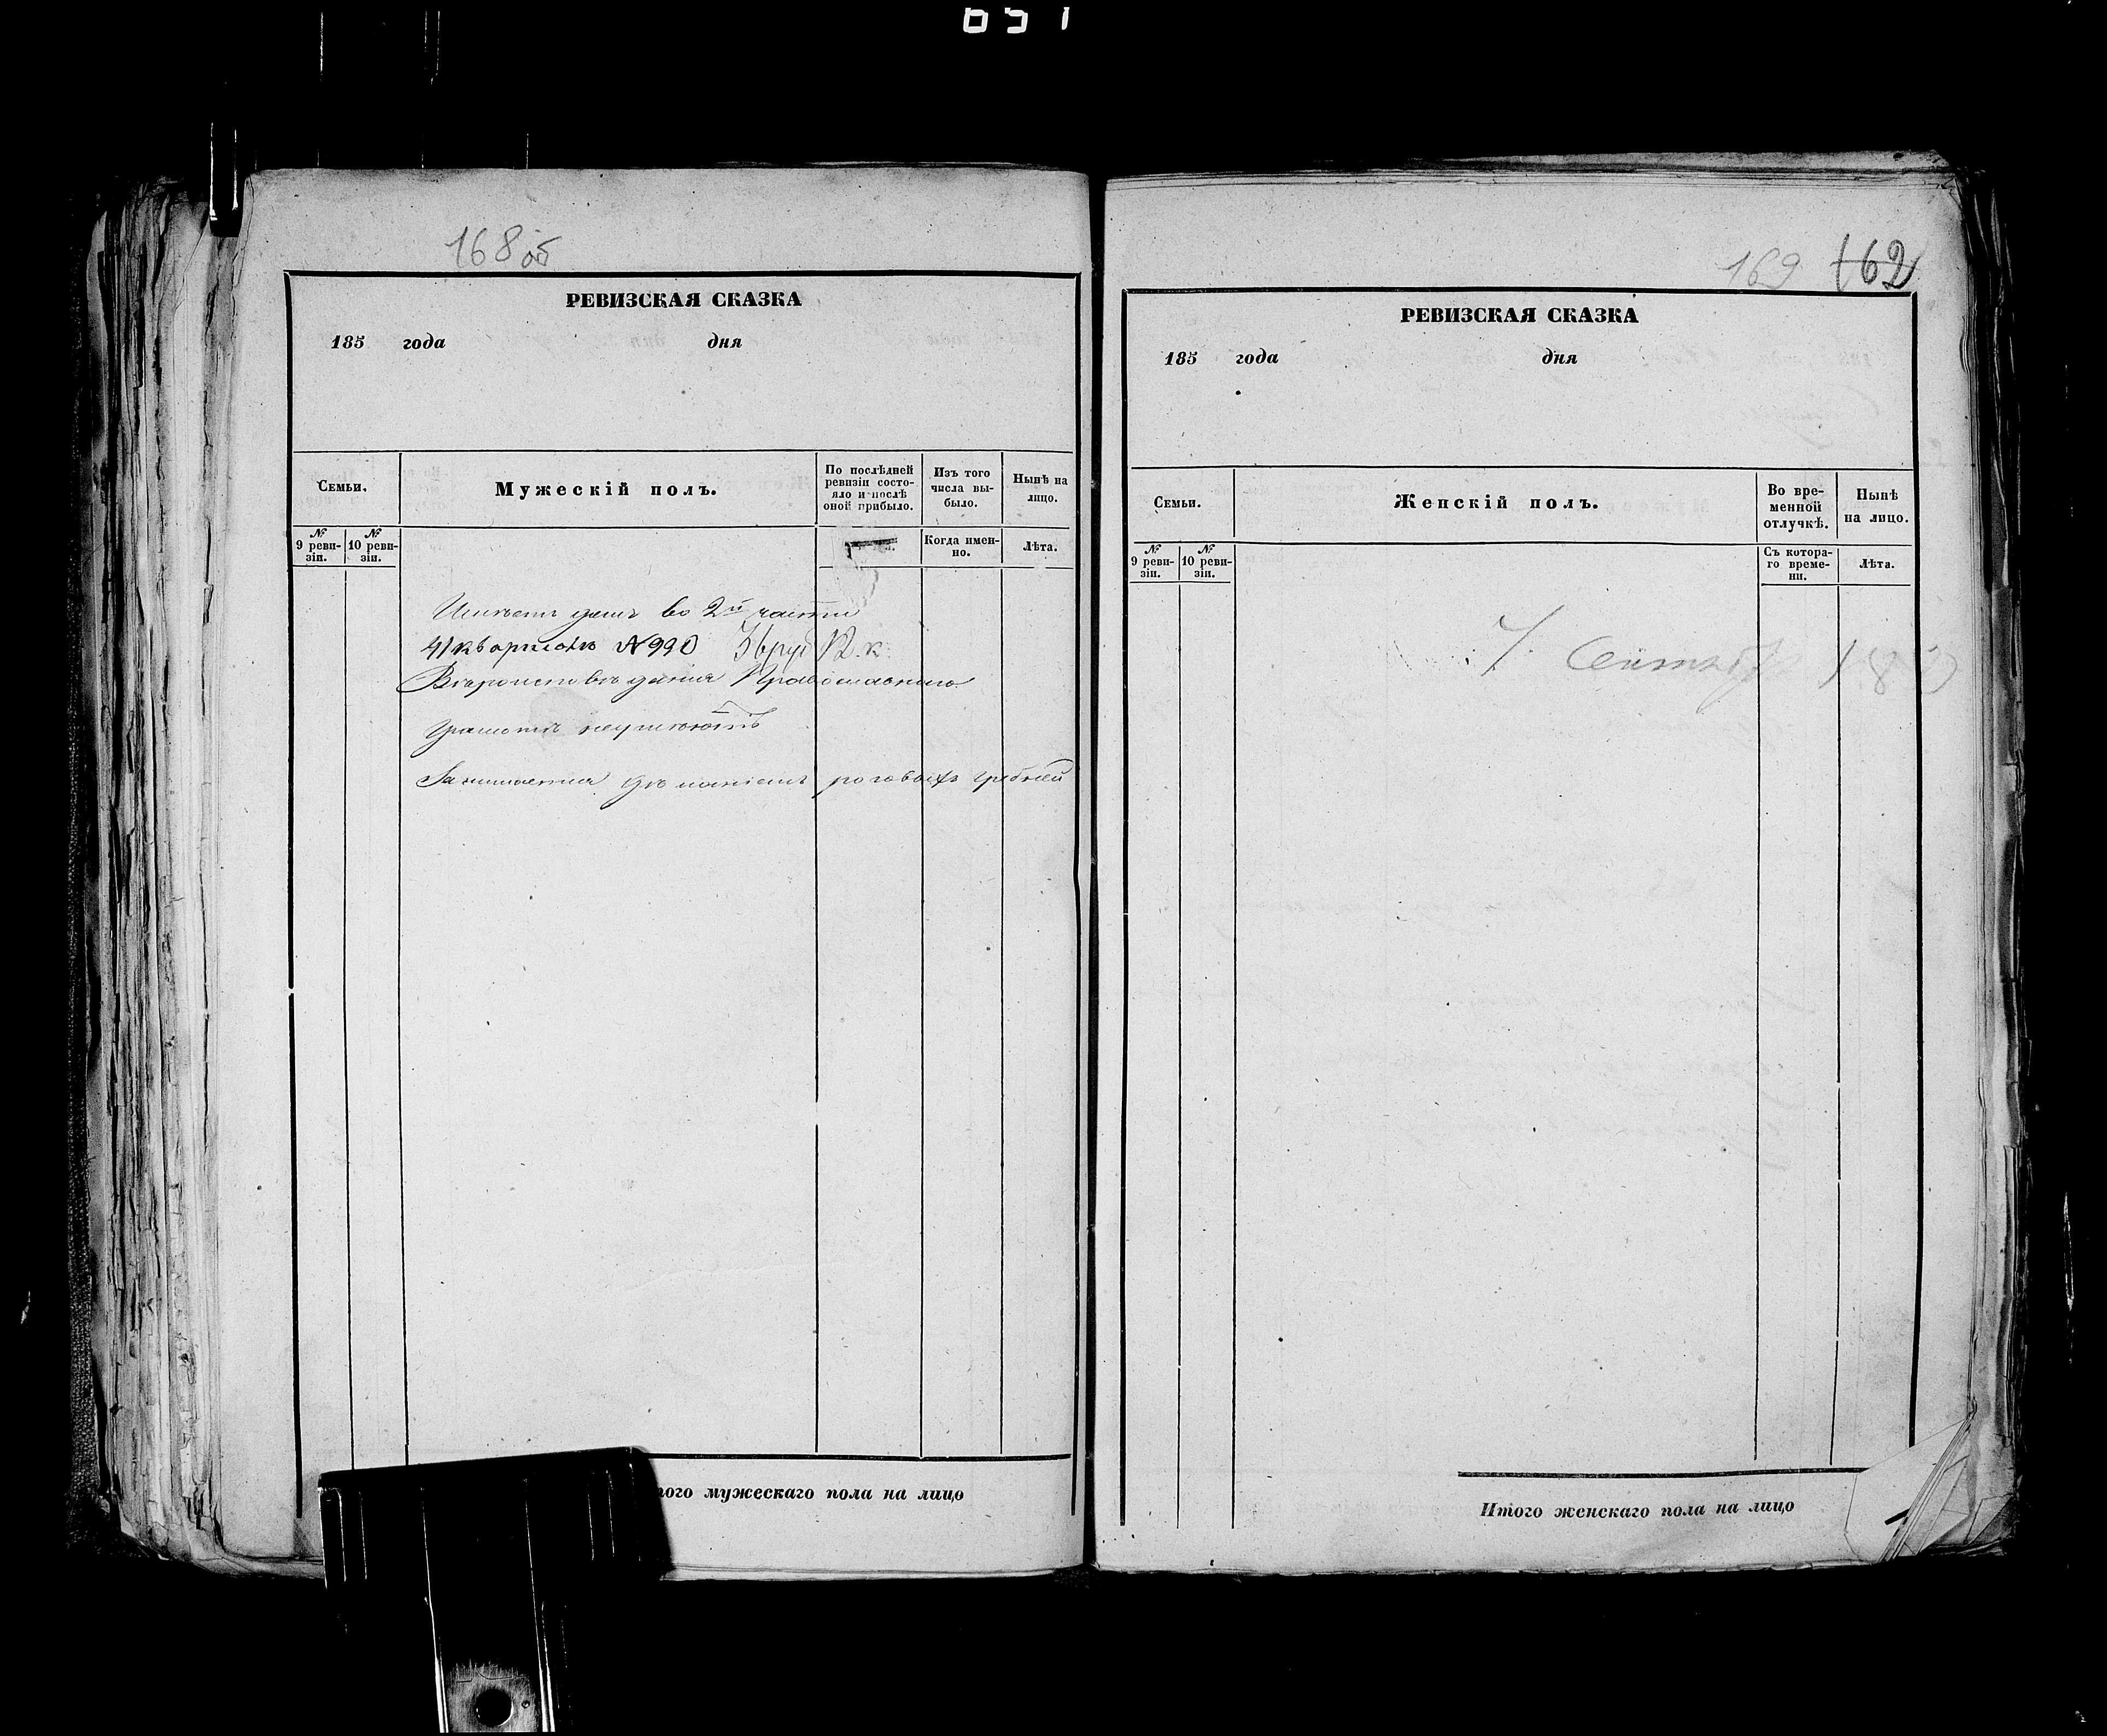 168 об
РЕВИЗСКАЯ СКАЗКА
185 года дня
Семьи.
Мужескій полъ.
По послѣдней ревизіи состояло и послѣ оной прибыло.
Изъ того числа выбыло.
Нынѣ на лицо.
№ 9 ревизіи.
№ 10 ревизіи.
Когда именно.
Лѣта.
Имѣетъ домъ во 2й части
4 квартала №990 руб 12 к.
Вѣроисповѣданія Православнаго
Грамоты неумѣютъ
Занимается дѣланіемъ роговыхъ гребней
того мужескаго пола на лицо
169 162
РЕВИЗСКАЯ СКАЗКА
185 года дня
Семьи.
Женскій полъ.
Во временной отлучкѣ.
Нынѣ на лицо.
№ 9 ревизіи.
№ 10 ревизіи.
Съ котораго времени.
Лѣта.
7. Сентябр
Итого женскаго пола на лицо